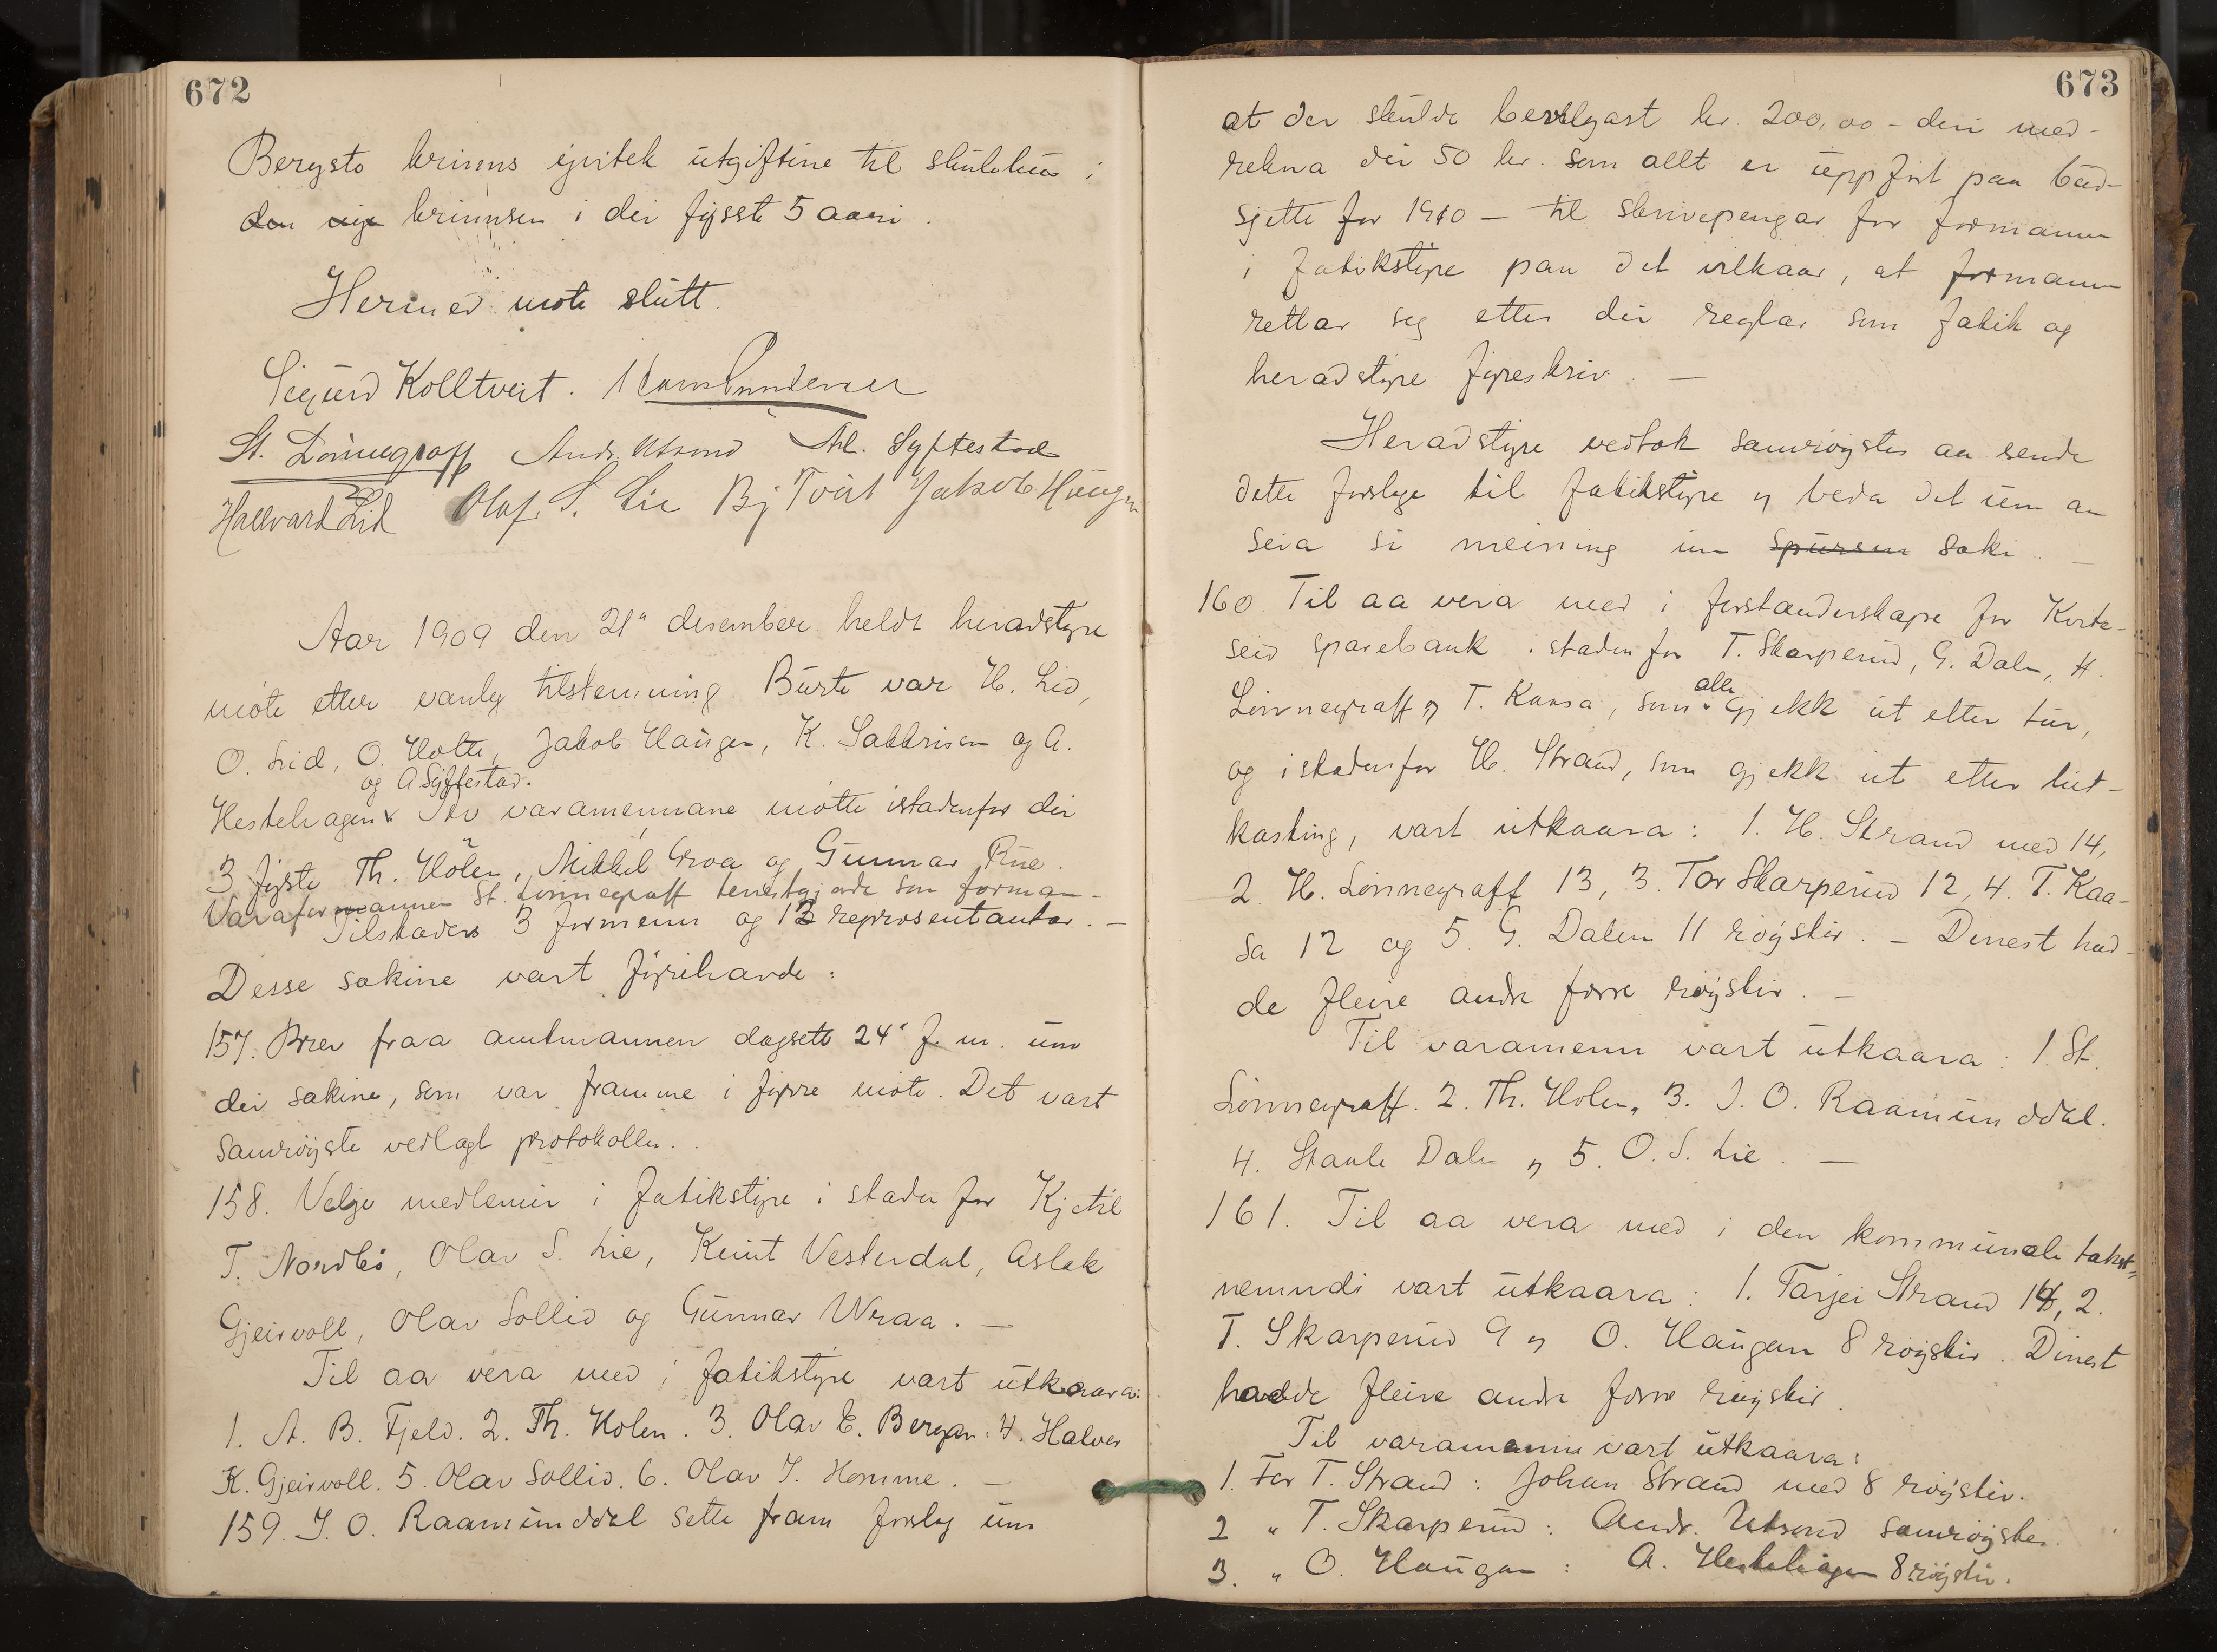 672
Bergsto krinns ijvitek utgiftine til skulehus i
den nye krinnsen i dei fysste 5 aari.
Hermed møte slutt.
Sigurd Kolltveit.
St. Lønnegraff Andr. Utsond Hl. Syftestad
Hallvard Lid Olaf S. Lie Bj Tveit Jakob Haugen
Aar 1909 den 21" desember heldt heradstyre
møte etter vanleg tilstemning. Burte var H. Lid,
O. Lid, O. Holte, Jakob Haugen, K. Sakkrisen og A.
og A Syftestad.
Hestehagen Av varamennane møtte istadenfor dei
3 fyste Th. Holen, Mikkel Groa og Gunnar Rue.
Varaformannen St. Lønnegraff tenestgjorde som forman-
Tilstades 3 formenn og 12 representantar. —
Desse sakine vart fyrehavde:
157. Brev fraa amtmannen dagsett 24' f. m. um
dei sakine, som var framme i fyrre møte. Det vart
samrøyste vedlagt protokollen.
158. Velje medlemir i fatikstyre i staden for Kjetil
T. Nordbø, Olav S. Lie, Knut Vesterdal, Aslak
Gjeirvoll, Olav Sollid og Gunnar Wraa. —
Til aa vera med i fatikstyre vart utkaara:
1. A. B. Fjeld. 2. Th. Holen. 3. Olav E. Bergan. 4. Halvor
K. Gjeirvoll. 5. Olav Sollid. 6. Olav J. Homme. —
159. J. O. Raamunddal sette fram forslag um
673
at der skulde bevilgast kr. 200,00 – deri med-
rekna dei 50 kr. som allt er uppført paa bud-
sjette for 1910 – til skrivepengar for formannen
i fatikstyre paa det vilkaar, at formannen
rettar seg etter dei reglar som fatik og
heradstyre fyreskriv. —
Heradstyre vedtok samrøystes aa sende
dette forslage til fatikstyre og beda det um aa
seia si meining um spursen saki. —
160. Til aa vera med i forstanderskape for Kvite-
seid sparebank i staden for T. Skarperud, G. Dalen, H.
Lønnegraff og T. Kaasa, som alle gjekk ut etter tur,
og istadenfor H. Strand, som gjekk ut etter lut-
kasting, vart utkaara: 1. H. Strand med 14,
2. H. Lønnegraff 13, 3. Tor Skarperud 12, 4. T. Kaa-
sa 12 og 5. G. Dalen 11 røystir. – Dinest had-
de fleire andre færre røystir. —
Til varamenn vart utkaara: 1. St.
Lønnegraff. 2. Th. Holen, 3. J. O. Raamunddal.
4. Staale Dalen og 5. O. S. Lie. —
161. Til aa vera med i den kommunale takst-
nemndi vart utkaara: 1. Tarjei Strand 14, 2.
T. Skarperud 9 og O. Haugan 8 røystir. Dinest
hadde fleire andre færre røystir.
Til varamenn vart utkaara:
1. For T. Strand: Johan Strand med 8 røystir.
2 " T. Skarperud: Andr. Utsond samrøystes.
3. " O. Haugan: A. Hestehagen 8 røystir.